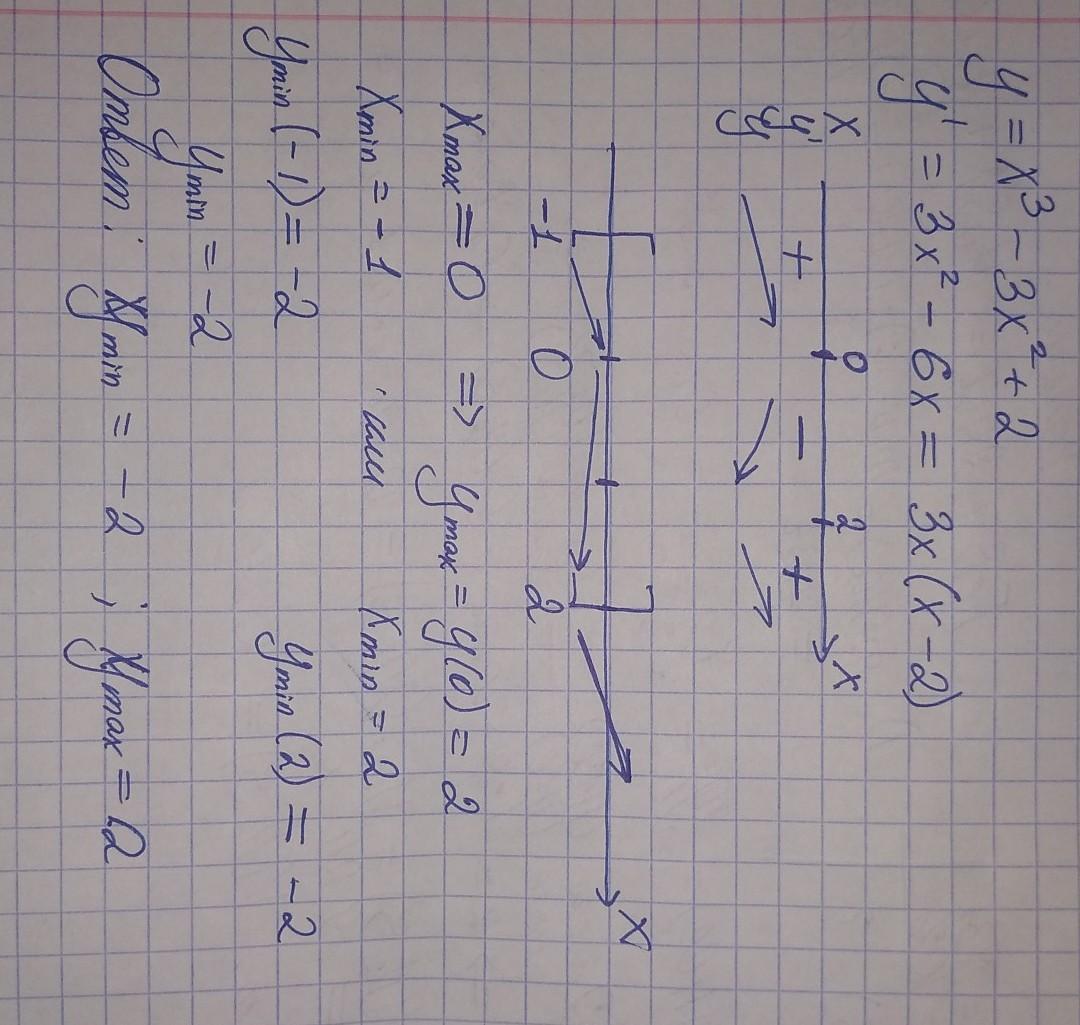 y = x³ - 3x² + 2
y' = 3x² - 6x = 3x(x - 2)
x 0 2 x
y' + - +
y
-1 0 2 x
x max = 0 => y max = y(0) = 2
x min = -1 , или x min = 2
y min (-1) = -2 y min (2) = -2
y min = -2
Ответ: y min = -2 ; y max = 2